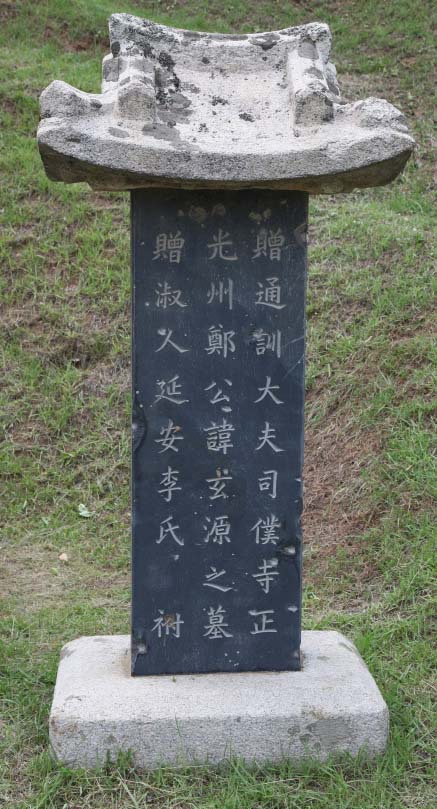 贈通訓大夫司僕寺正
光州鄭公諱玄源之墓
贈淑人延安李氏 祔